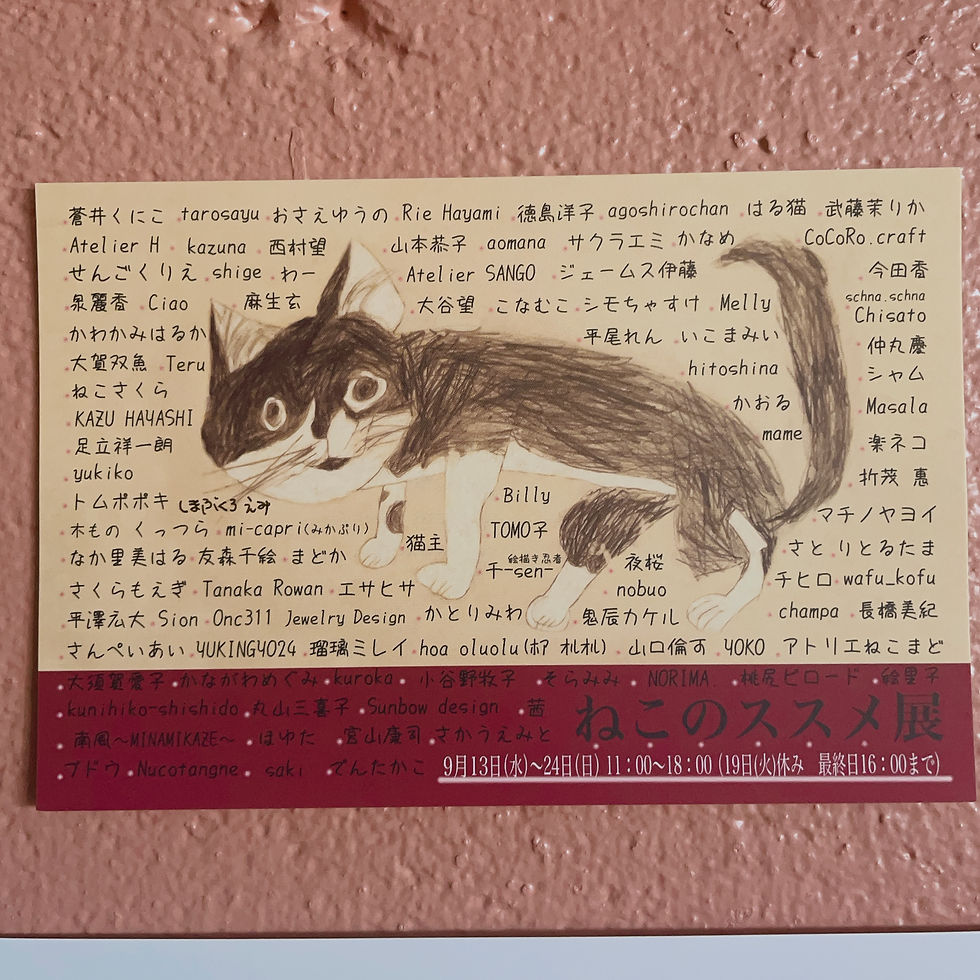 蒼井くにこ tarosayu おさえゆうの Rie Hayami 徳島洋子 agoshirochan はる猫 武藤茉りか
Atelier H kazuna 西村望 山本恭子 aomana サクラエミ かなめ CoCoRo.craft
せんごくりえ shige わー Atelier SANGO ジェームス伊藤 今田香
泉麗香 Ciao 麻生玄 大谷望 こなむこ シモちゃすけ Melly schna.schna
Chisato
かわかみはるか 平尾れん いこまみい 仲丸慶
大賀双魚 Teru hitoshina シャム
ねこさくら かおる Masala
KAZU HAYASHI mame 楽ネコ
足立祥一朗
yukiko Billy 折茂 惠
トムポポキ しまぶくろえみ マチノヤヨイ
木もの くっつら mi-capri(みかぷり) 猫主 TOMO子 さと りとるたま
なか里美はる 友森千絵 まどか 絵描き忍者
千-sen- 夜桜 チヒロ wafu_kofu
さくらもえぎ Tanaka Rowan エサヒサ nobuo
平澤広大 Sion Onc311 Jewelry Design かとりみわ 鬼辰カケル champa 長橋美紀
さんぺいあい YUKING4024 瑠璃ミレイ hoa oluolu(ホア オルオル) 山口倫す YOKO アトリエねこまど
大須賀愛子 かながわめぐみ kuroka 小谷野牧子 そらみみ NORIMA. 桃尻ビロード 絵里子
kunihiko-shishido 丸山三喜子 Sunbow design 茜
南風～MINAMIKAZE～ ほゆた 宮山廣司 さかうえみと
ブドウ Nucotangne saki でんたかこ
ねこのススメ展
9月13日(水)～24日(日) 11:00～18:00 (19日(火)休み 最終日16:00まで)